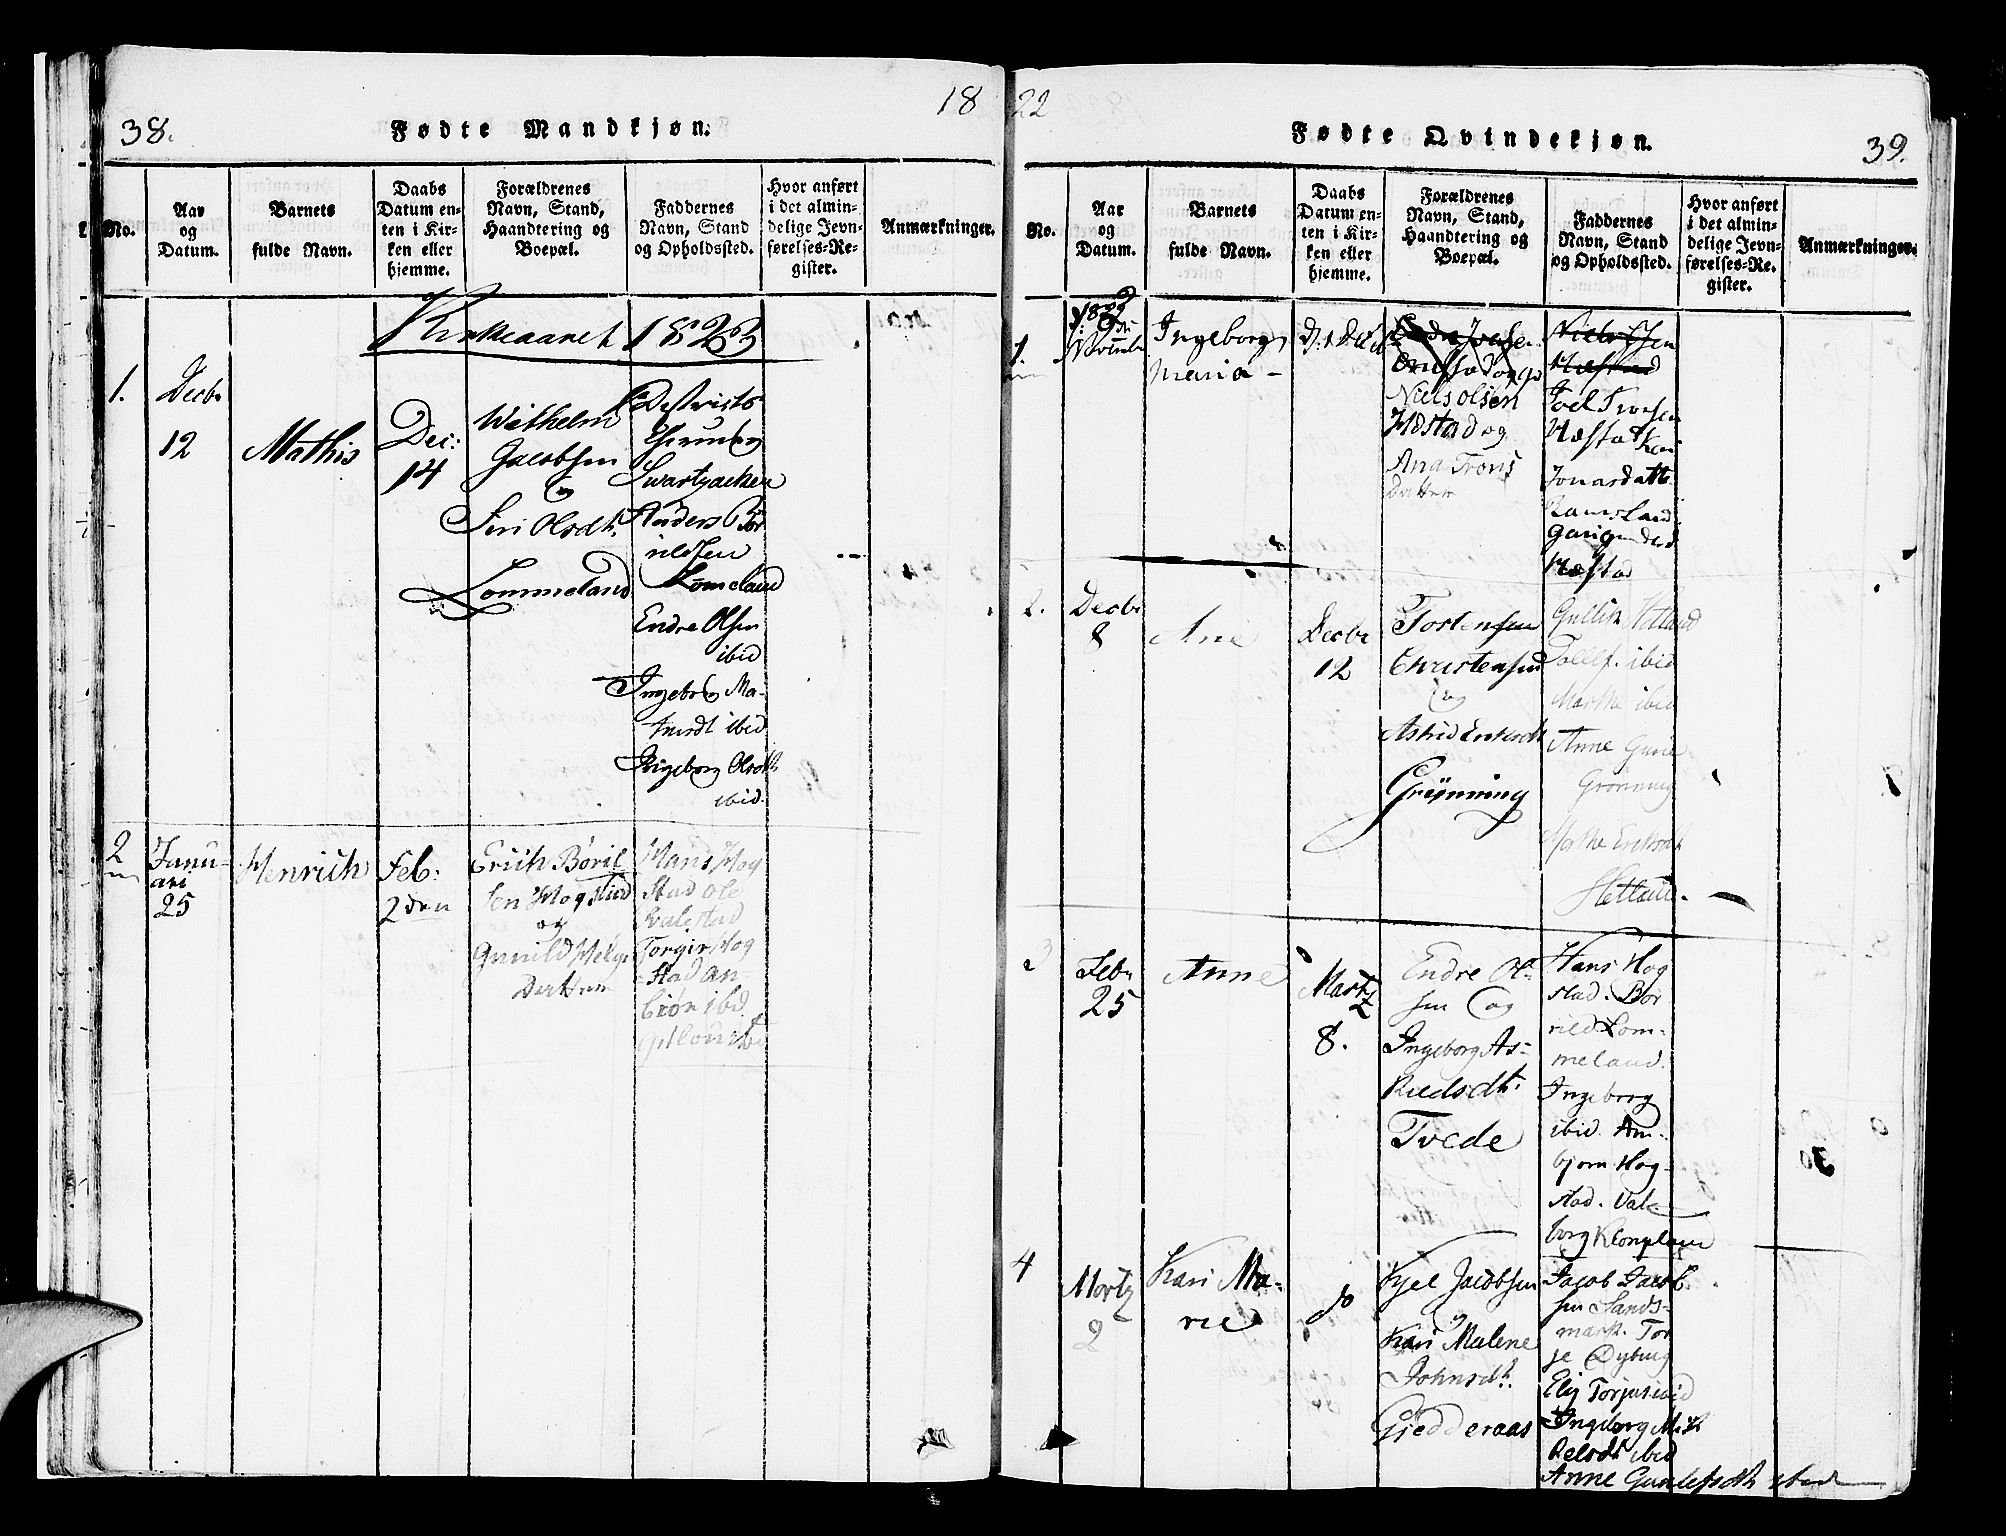 38.
Fødte Mandkjøn.
18
No.
Aar
og
Datum.
Barnets
fulde Navn.
Daabs
Datum en-
ten i Kir-
ken eller
hjemme.
Forældrenes
Navn, Stand,
Haandtering og
Boepæl.
Faddernes
Navn, Stand
og Opholdssted.
Hvor anført
i det almin-
delige Jevn-
førelses-Re-
gister.
Anmærkninger.
Kirkeaaret 1823
1.
Decbr
12
Mathis
Dec:
14
Wilhelm
Jacobsen
og
Siri Olsdt.
Lommeland
Anders Bør
rildsen
Lomeland
Endre Olsen
ibid
Ingeborg Ma-
ibid
Ingeborg Olsdt
ibid.
2
Janu-
ari
25
Henrich
Feb:
2den
Erich Børil
sen Hogstad
og
Gunild Helge
Datter
Hans Hog
stad Ole
Torgir Hog
stad an-
biør ibd
22
Fødte Qvindekjøn.
39.
No.
Aar
og
Datum.
Barnets
fulde Navn.
Daabs
Datum en-
ten i Kir-
ken eller
hjemme.
Forældrenes
Navn, Stand,
Haandtering og
Boepæl.
Faddernes
Navn, Stand
og Opholdssted.
Hvor anført
i det almin-
delige Jevn-
førelses-Re-
gister.
Anmærkninger.
1.
1822
Novembr
Ingeborg
Maria
Niels Olsen
Hæstad og
Ana Trons
Datter
Niels Olsen
Hæstad
Joel Tronsen
Hæstad
Jonasdatt
Ramsland
Hæstad
2.
Decbr
8
Ane
Decbr
12
Tostensen
Christensen
og
Astrid Eriksdt
Grønning
Gullik Hetland
Tollef. ibid
Marthe ibid
Anne Gurie
Grønning
Marthe Ericksdt
Hetland.
3
Febr
25
Anne
Martz
8.
Endre Ol-
sen og
Ingeborg As-
Tvede
Hans Hog
stad. Bør
rild Lom-
meland.
Ingeborg
ibid. Am-
bjørn Hog-
stad. Val-
borg
4
Martz
2
Kari Ma-
rie
do
Kjel Jacobsen
og
Kari Malene
Johnsdt.
Gjedderaas
Jacob Jacob-
sen Sands-
mark. Tor
je Dybing
Eli Torjus ibid
Ingeborg Mik
kelsdt ibid
Anne Gunlefsdtr ibid